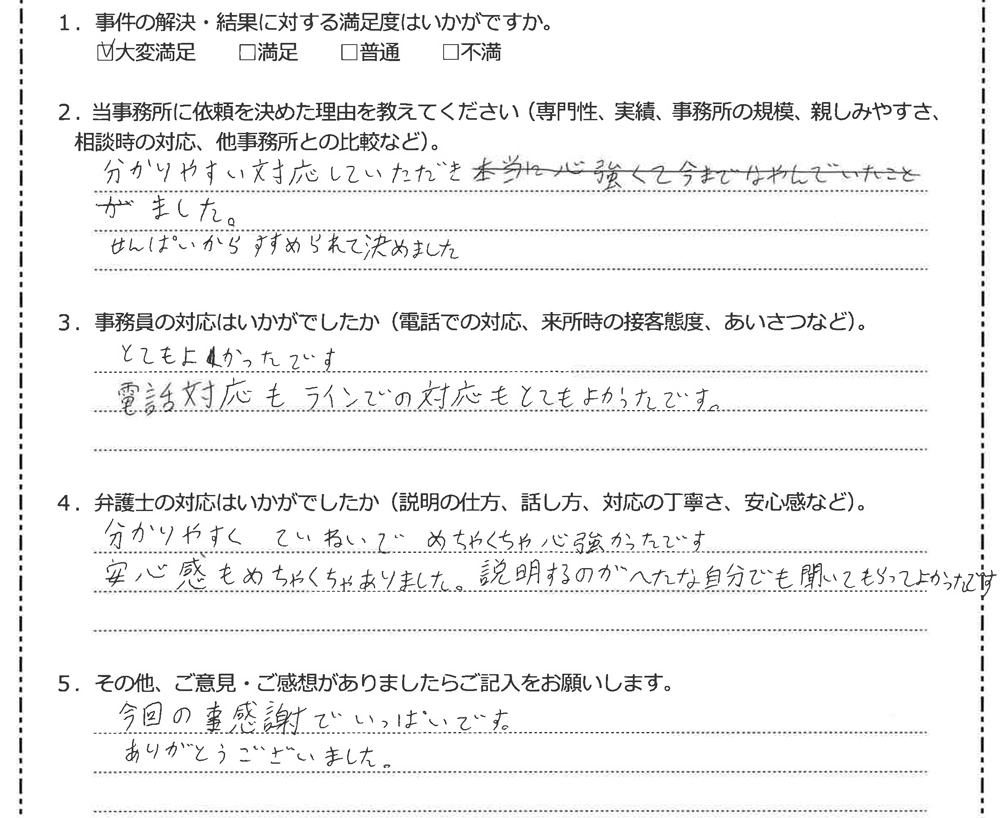 1．事件の解決・結果に対する満足度はいかがですか。
☑大変満足 □満足 □普通 □不満
2．当事務所に依頼を決めた理由を教えてください（専門性、実績、事務所の規模、親しみやすさ、
相談時の対応、他事務所との比較など）。
分かりやすい対応していただき本当に心強くて今までなやんでいたこと
がました。
せんぱいからすすめられて決めました
3．事務員の対応はいかがでしたか（電話での対応、来所時の接客態度、あいさつなど）。
とてもよかったです
電話対応もラインでの対応もとてもよかったです。
4．弁護士の対応はいかがでしたか（説明の仕方、話し方、対応の丁寧さ、安心感など）。
分かりやすく ていねいで めちゃくちゃ心強かったです
安心感もめちゃくちゃありました。説明するのがへたな自分でも聞いてもらってよかったです
5．その他、ご意見・ご感想がありましたらご記入をお願いします。
今回の事感謝でいっぱいです。
ありがとうございました。